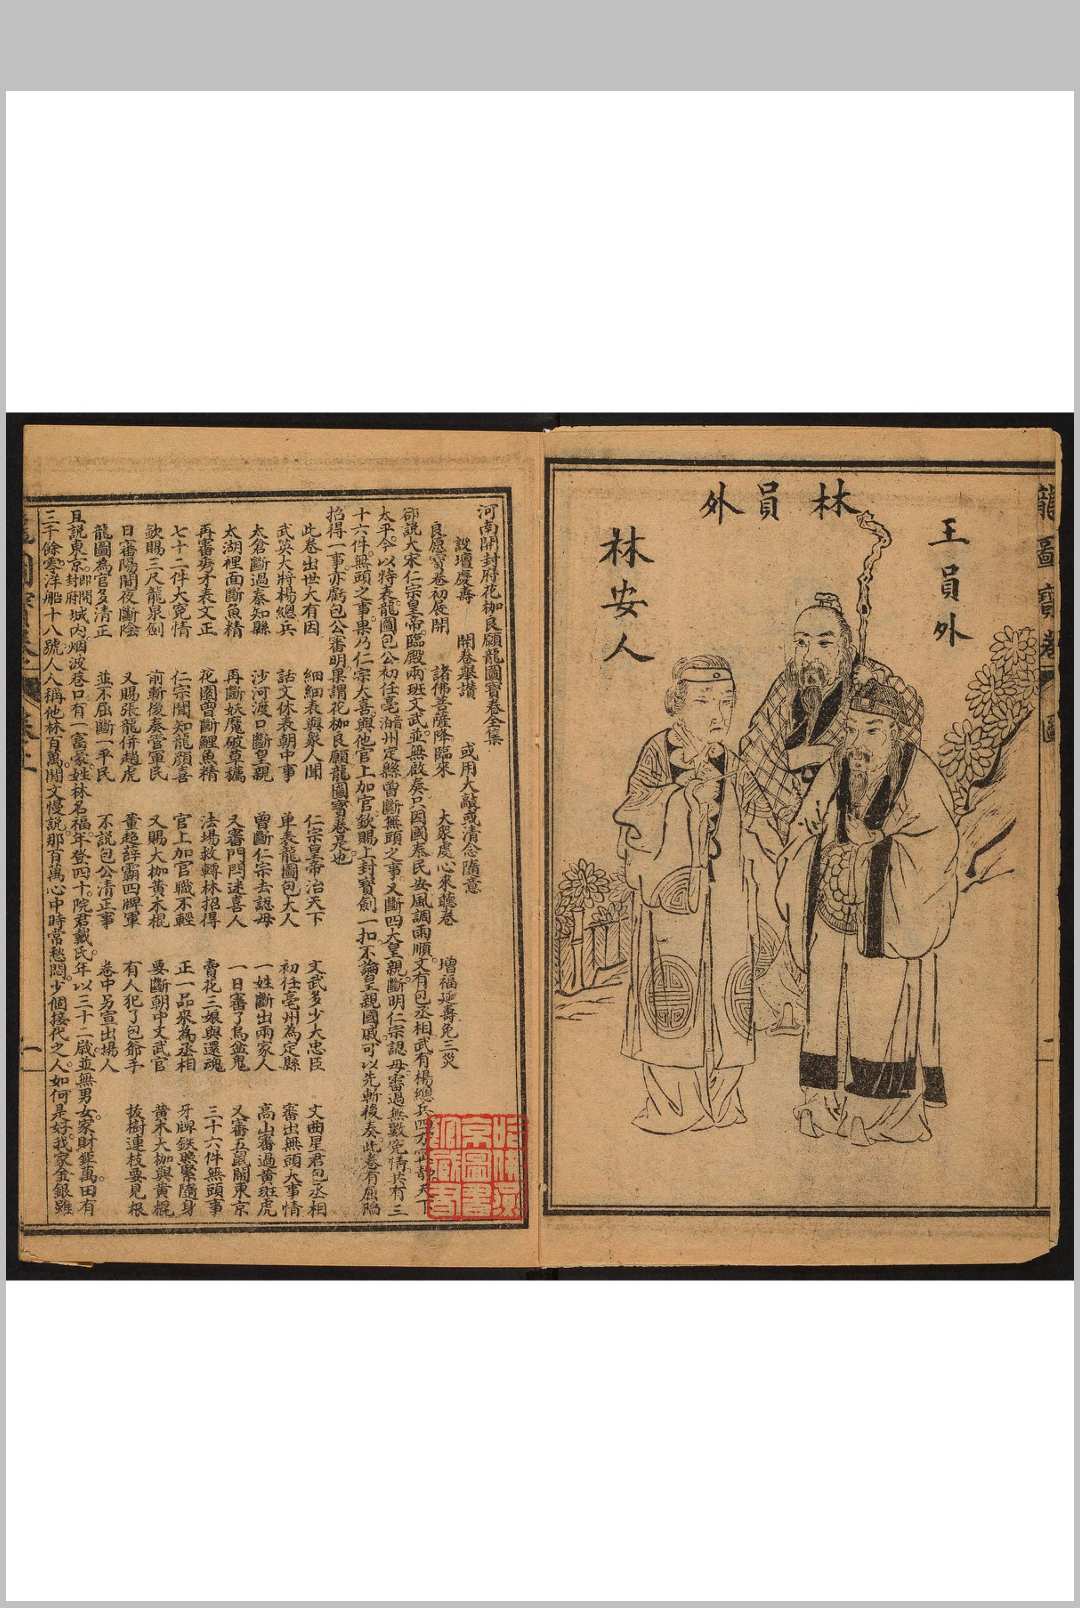 龍圖寶卷
圖
王員外
林員外
林安人
河南開封府花枷良願龍圖寶卷全集
設壇慶壽 開卷舉讚 或用大敲或清念隨意
良愿寶卷初展開 諸佛菩薩降臨來 大衆虔心來聽卷 增福延壽免三災
卻說大宋仁宗皇帝臨殿兩班文武並無啟奏只因國泰民安風調雨順文有包丞相武有楊總兵四方寧靜天下
太平今以特表龍圖包公初任亳州定縣曾斷無頭之事又斷四大皇親斷明仁宗認母審過無數冤情共有三
十六件無頭之事果乃仁宗大喜與他官上加官欽賜上封寶劍一扣不論皇親國戚可以先斬後奏此卷有屈陷
招得一事亦虧包公審明果謂花枷良願龍圖寶卷是也
此卷出世大有因 細細表與衆人聞 仁宗皇帝治天下 文武多少大忠臣 文曲星君包丞相
武英大將楊總兵 話文休表朝中事 單表龍圖包大人 初任亳州為定縣 審出無頭大事情
太倉斷過秦知縣 沙河渡口斷皇親 曾斷仁宗去認母 一姓斷出兩家人 高山審過黃斑虎
太湖裡面斷魚精 再斷妖魔破草鞋 又審門閂迷喜人 一日審了烏盆鬼 又審五鼠鬧東京
再審秀才表文正 花園曾斷鯉魚精 法場救轉林招得 賣花三娘與還魂 三十六件無頭事
七十二件大冤情 仁宗聞知龍顏喜 官上加官職不輕 正一品來為丞相 牙牌鉄照緊隨身
欽賜三尺龍泉劍 前斬後奏管軍民 又賜大枷黃木棍 要斷朝中文武官 黃木大枷與黃棍
日審陽間夜斷陰 又賜張龍併趙虎 董超薛霸四牌軍 有人犯了包爺手 拔樹連枝要見根
龍圖為官多清正 並不屈斷一平民 不說包公清正事 卷中另宣出場人
且說東京即開封府城內烟波巷口有一富豪姓林名福年登四十院君戴氏年以三十二歲並無男女家財鉅萬田有
三千餘零洋船十八號人人稱他林百萬閒文慢說那百萬心中時常愁悶少個接代之人如何是好我家金銀雖